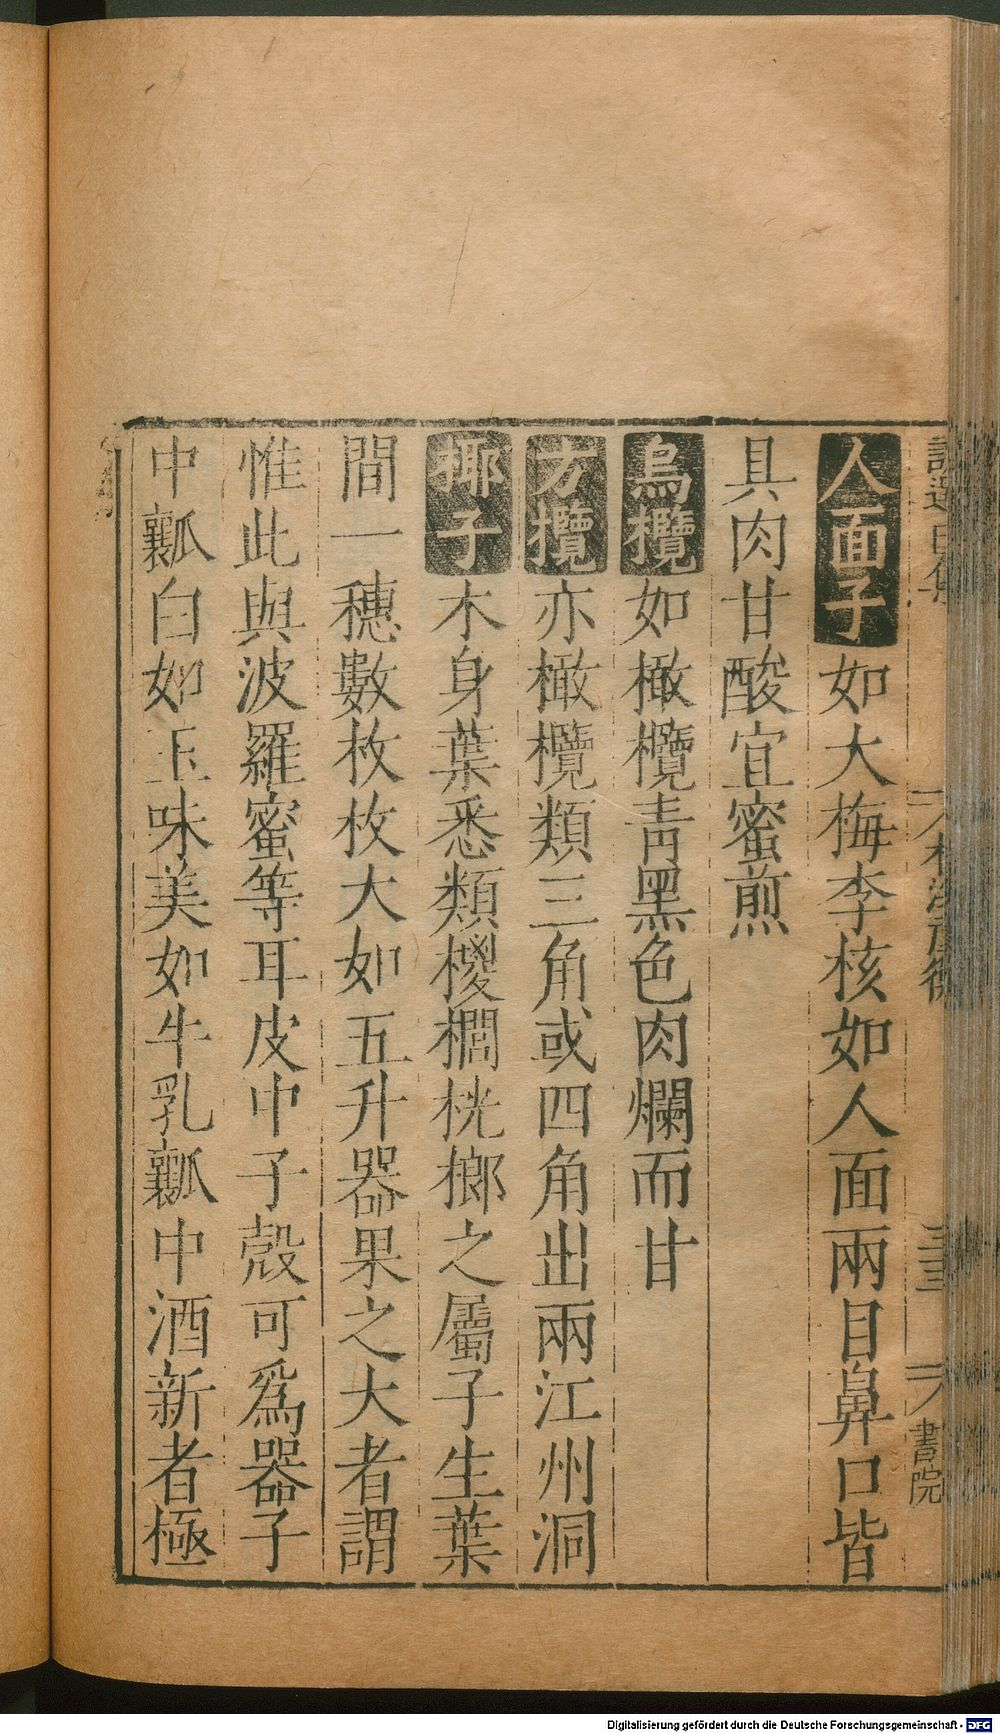 人面子如大梅李核如人面兩目鼻口皆
具肉甘酸宜蜜煎
烏欖如橄欖青黑色肉爛而甘
方欖亦橄欖類三角或四角出兩江州洞
椰子木身葉悉類椶櫚桄榔之屬子生葉
間一穗數枚枚大如五升器果之大者謂
惟此與波羅蜜等耳皮中子殼可爲器子
中瓤白如玉味美如牛乳瓤中酒新者極
書院
Digitalisierung gefördert durch die Deutsche Forschungsgemeinschaft - DFG